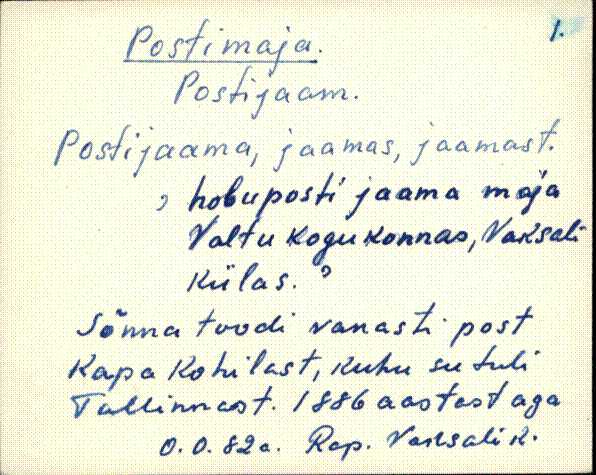 1.
Postimaja.
Postijaam.
Postijaama, jaamas, jaamast.
, hobuposti jaama maja
Valtu kogukonnas, Vaksali
külas.?
Sõnna toodi vanasti post
Kapa Kohilast, kuhu se tuli
Tallinnast. 1886 aastast aga
O.O. 82a. Rap. Vaksali k.